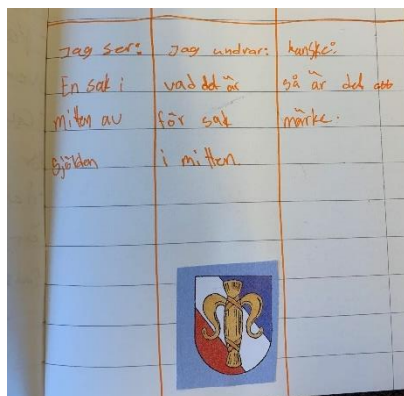 Jag ser:
En sak i
mitten av
sjölden
Jag undrar:
vad det är
för sak
i mitten.
kanske:
så är det ett
märke.